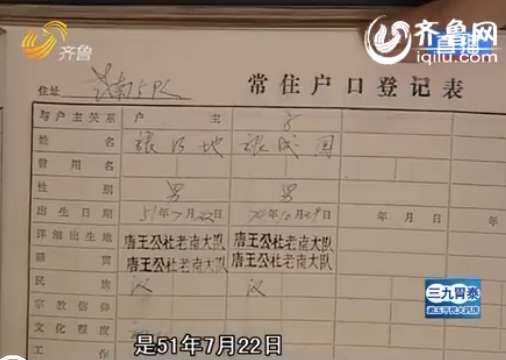 齐鲁
齐鲁网
直播
iqilu.com
住址 南5队
常住户口登记表
与户主关系 户主 子
姓名 张乃地 张成国
曾用名
性别 男 男
出生日期 51年7月22日 年10月29日 年月日 年
详细出生地 唐王公社老南大队 唐王公社老南大队
籍贯 唐王公社老南大队 唐王公社老南大队
民族 汉 汉
宗教信仰
文化程度
工作
三九胃泰
是51年7月22日